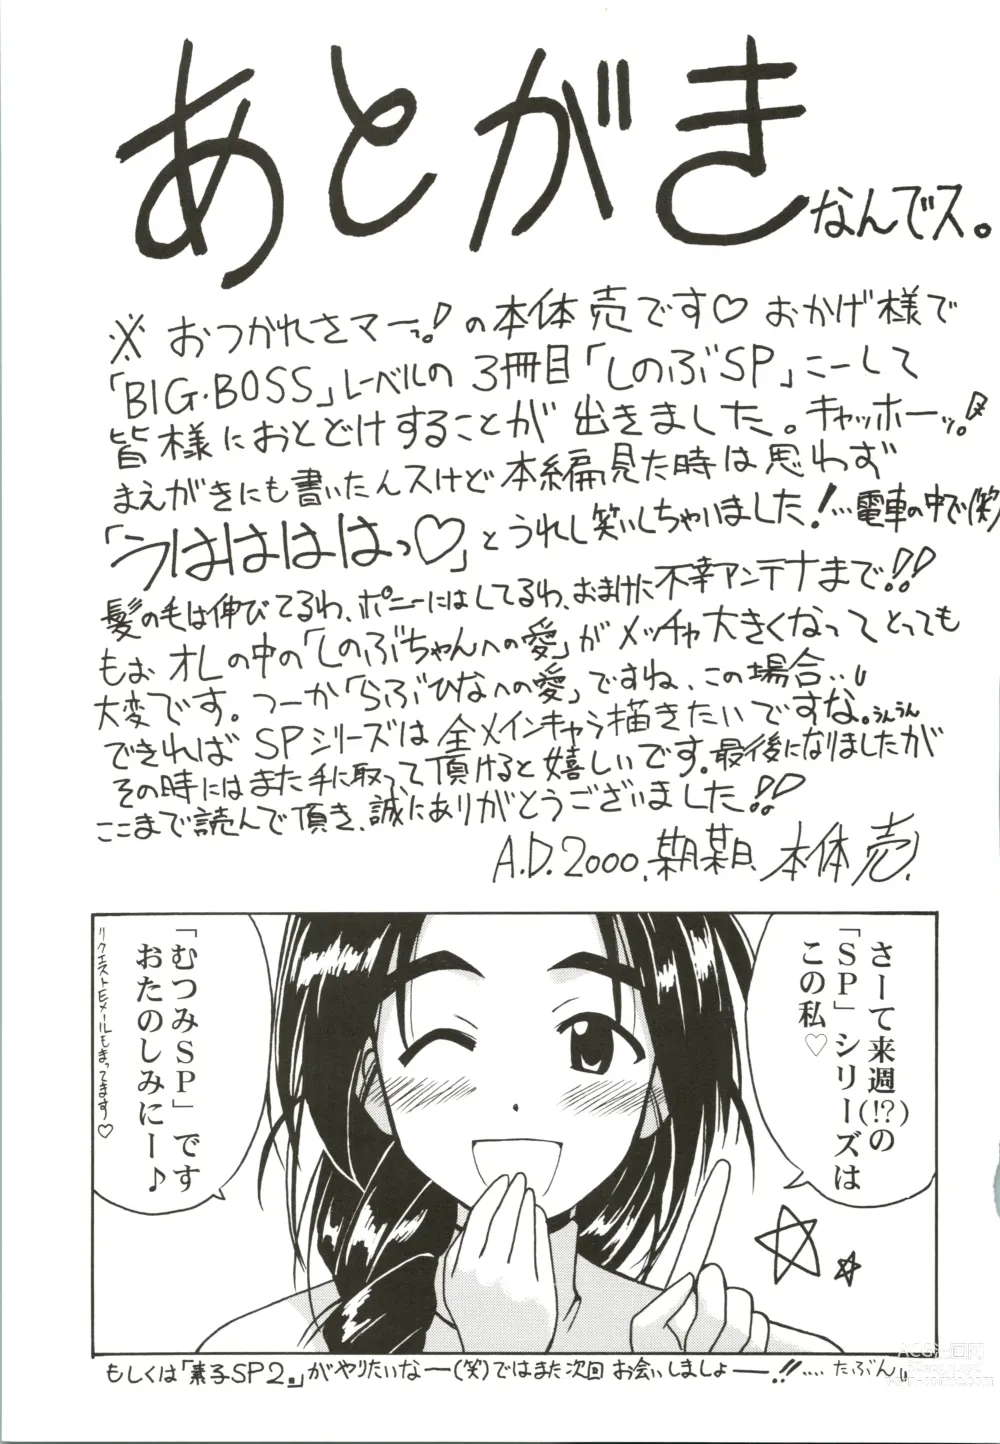 あとがき なんでス。
※おつかれさマーっ!の本体売です♡ おかげ様で
「BIG・BOSS」レーベルの3冊目「しのぶSP」こーして
皆様におとどけすることが出きました。キャッホーッ!
まえがきにも書いたんスけど本編見た時は思わず
「うはははは っ♡」とうれし笑いしちゃいました!…電車の中で(笑)
髪の毛は伸びてるわ、ポニーにはしてるわ、おまけに不幸アンテナまで!!
もぉオレの中の「しのぶちゃんへの愛」がメッチャ大きくなってとっても
大変です。つーか「らぶひなへの愛」ですね、この場合…
できればSPシリーズは全メインキャラ描きたいですな。うんうん
その時にはまた手に取って頂けると嬉しいです。最後になりましたが
ここまで読んで頂き、誠にありがとうございました!!
A.D.2000.某月某日 本体売.
さーて来週(!?)の
「SP」シリーズは
この私♡
「むつみSP」です
おたのしみにー♪
リクエストEメールもまってます♡
もしくは「素子SP2。」がやりたいなー(笑)ではまた次回 お会いしましょー!!….たぶん